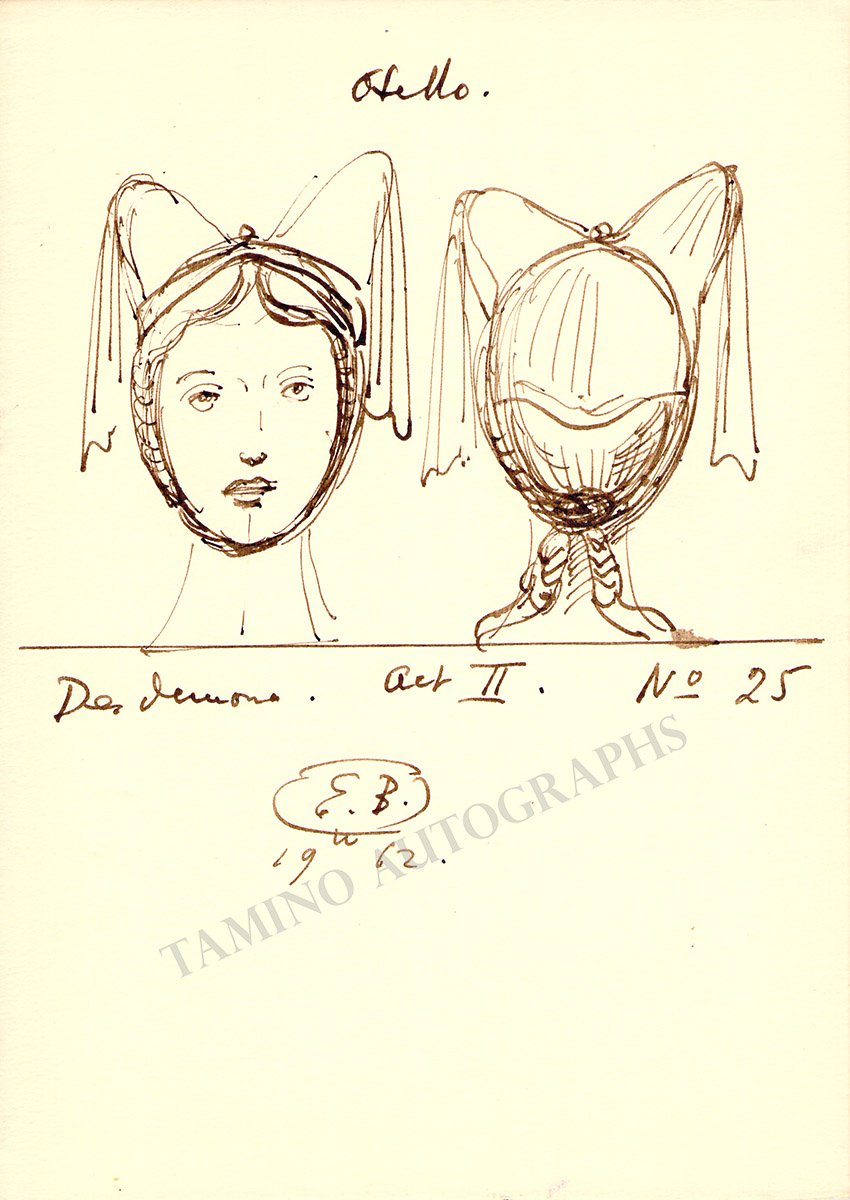 Otello.
Desdemona. Act II. Nº 25
E.B.
19 62.
TAMINO AUTOGRAPHS